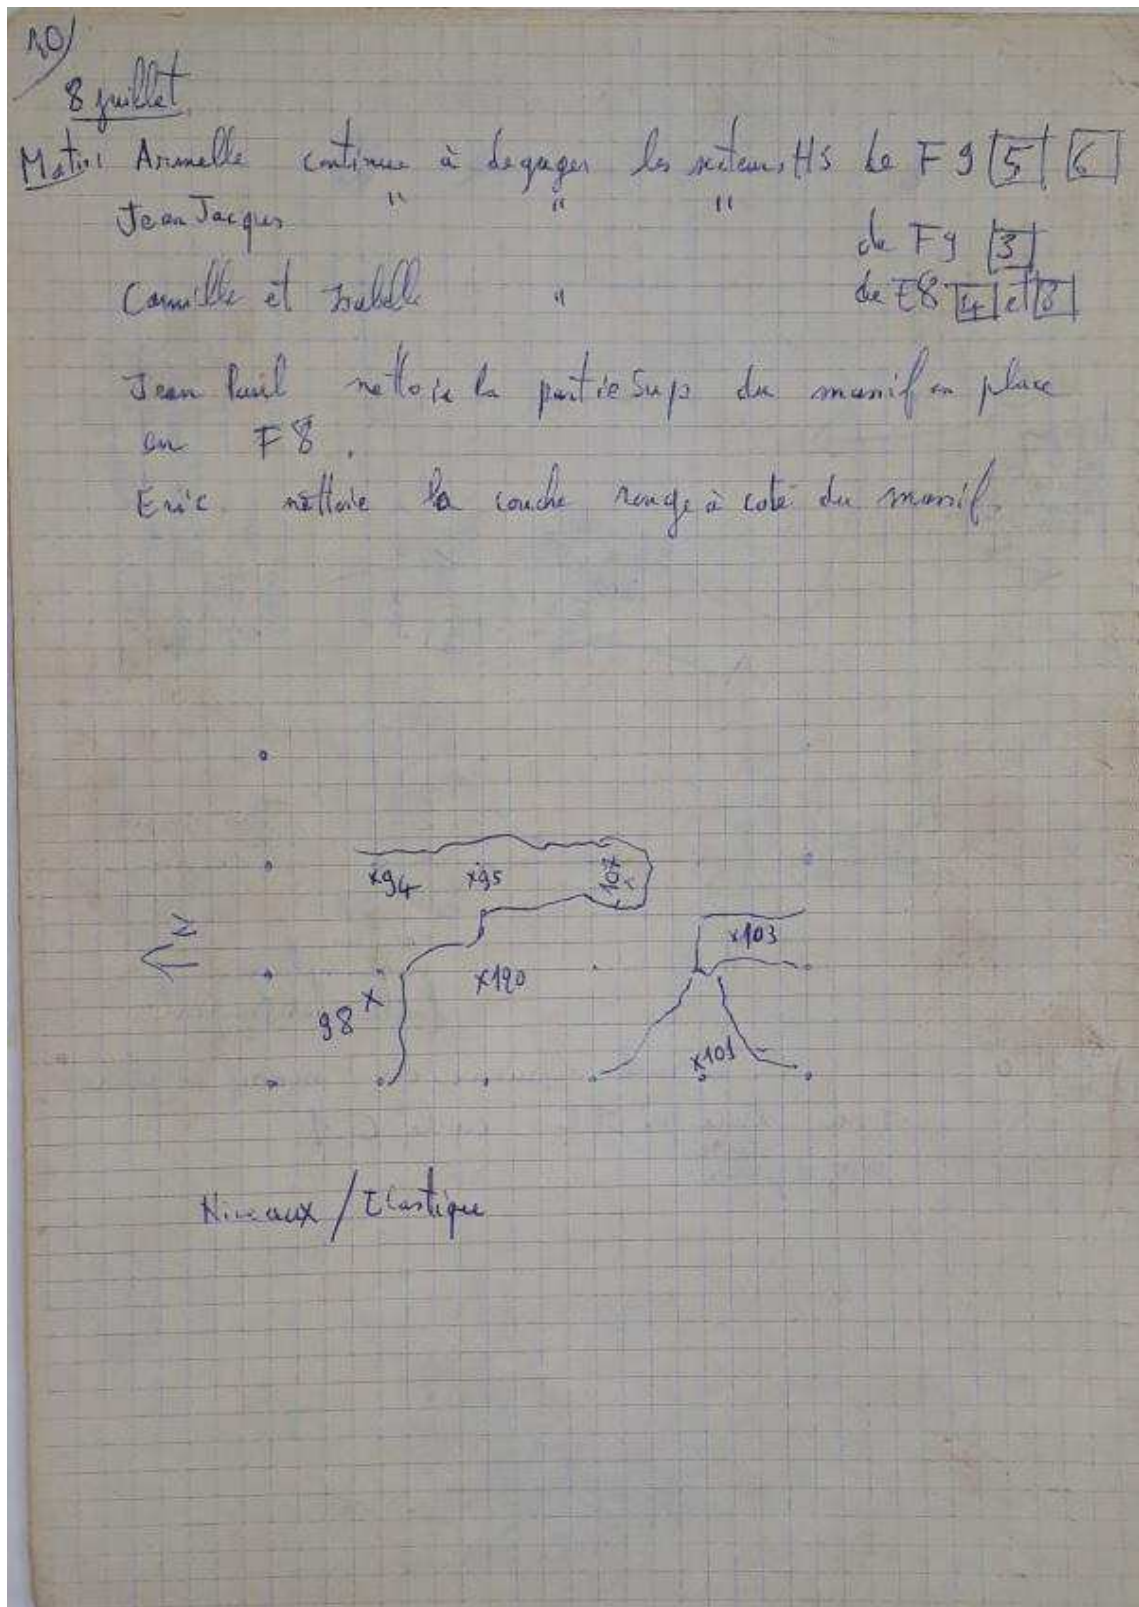 10/
8 juillet
Matin Armelle continue à degager les secteurs HS de F9 [5] [6]
Jean Jacques " " " de F9 [3]
Camille et Isabelle " de E8 [4] et [8]
Jean Paul nettoie la partie Sup du massif en place
en F8.
Eric nettoie la couche rouge à coté du massif.
x94 x95 102 x
N
x103
98 x x120
x101
Niveaux / Elastique